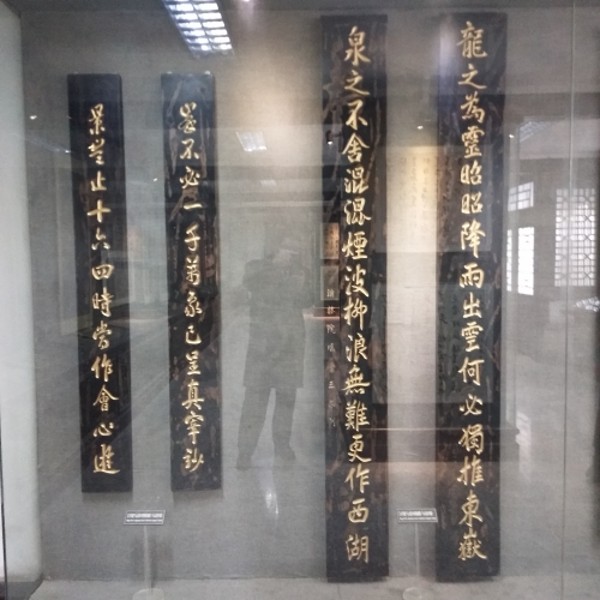 龍之為靈昭昭降雨出雲何必獨推東嶽
泉之不舍混混煙波柳浪無難更作西湖
不必一千萬象已呈真宰妙
景豈止十六四時當作會心遊